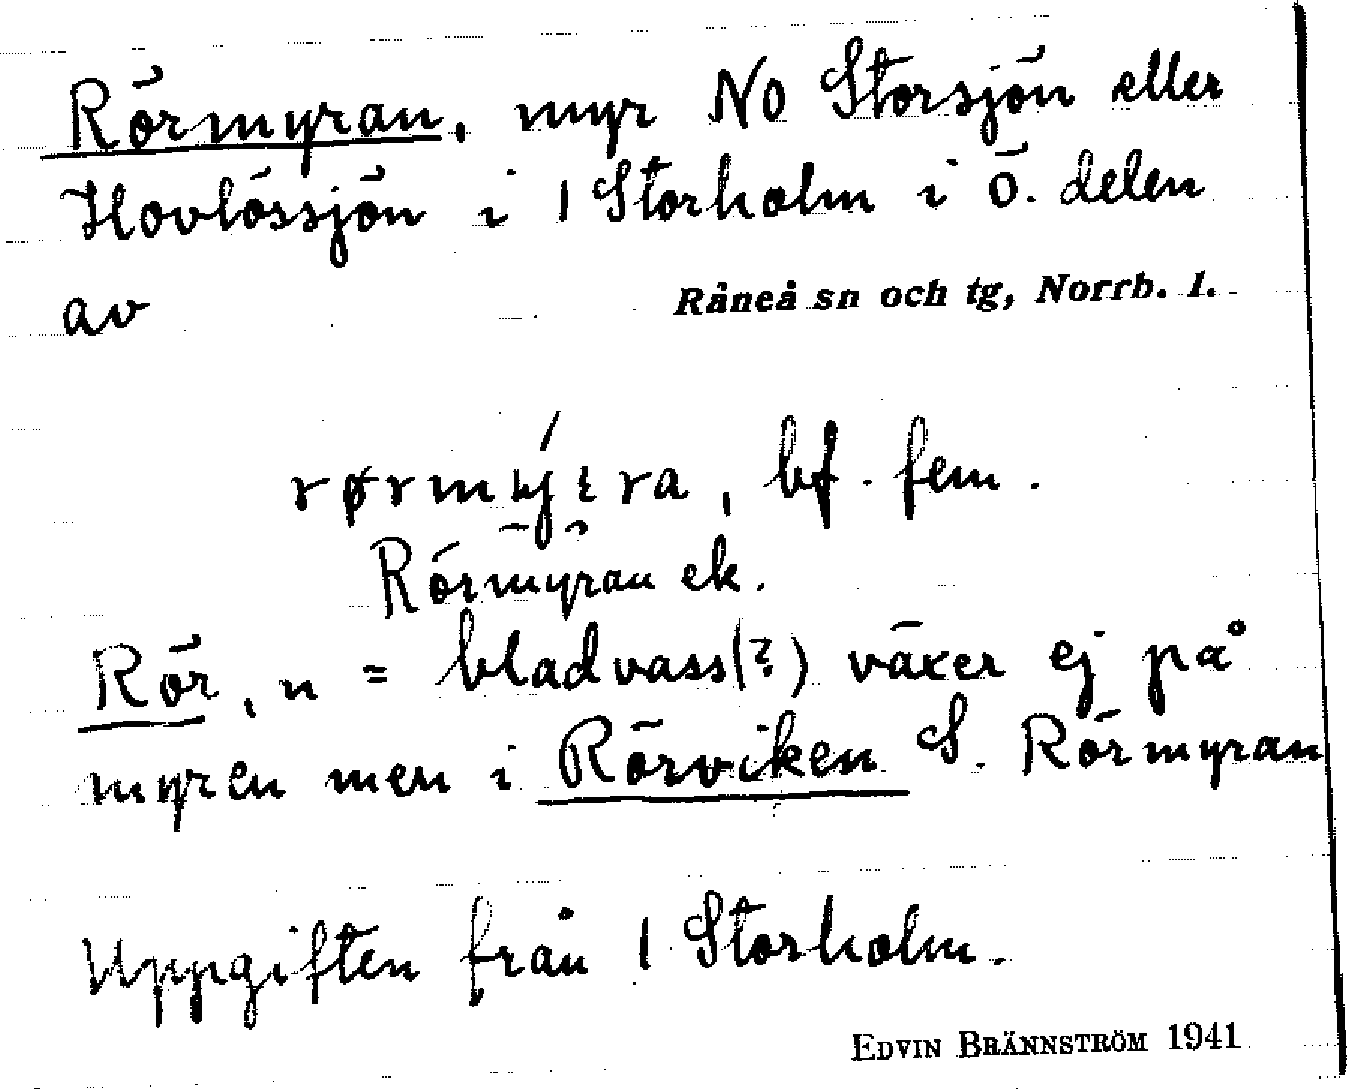 Rörmyran, myr NO Storsjön eller
Hovlössjön i 1 Storholm i ö. delen
av Råneå sn och tg, Norrb. l.
bf. fem.
Rörmyran ek.
Rör, n = bladvass(?) växer ej på
myren men i Rörviken S. Rörmyran
Uppgiften från 1 Storholm.
EDVIN BRÄNNSTRÖM 1941